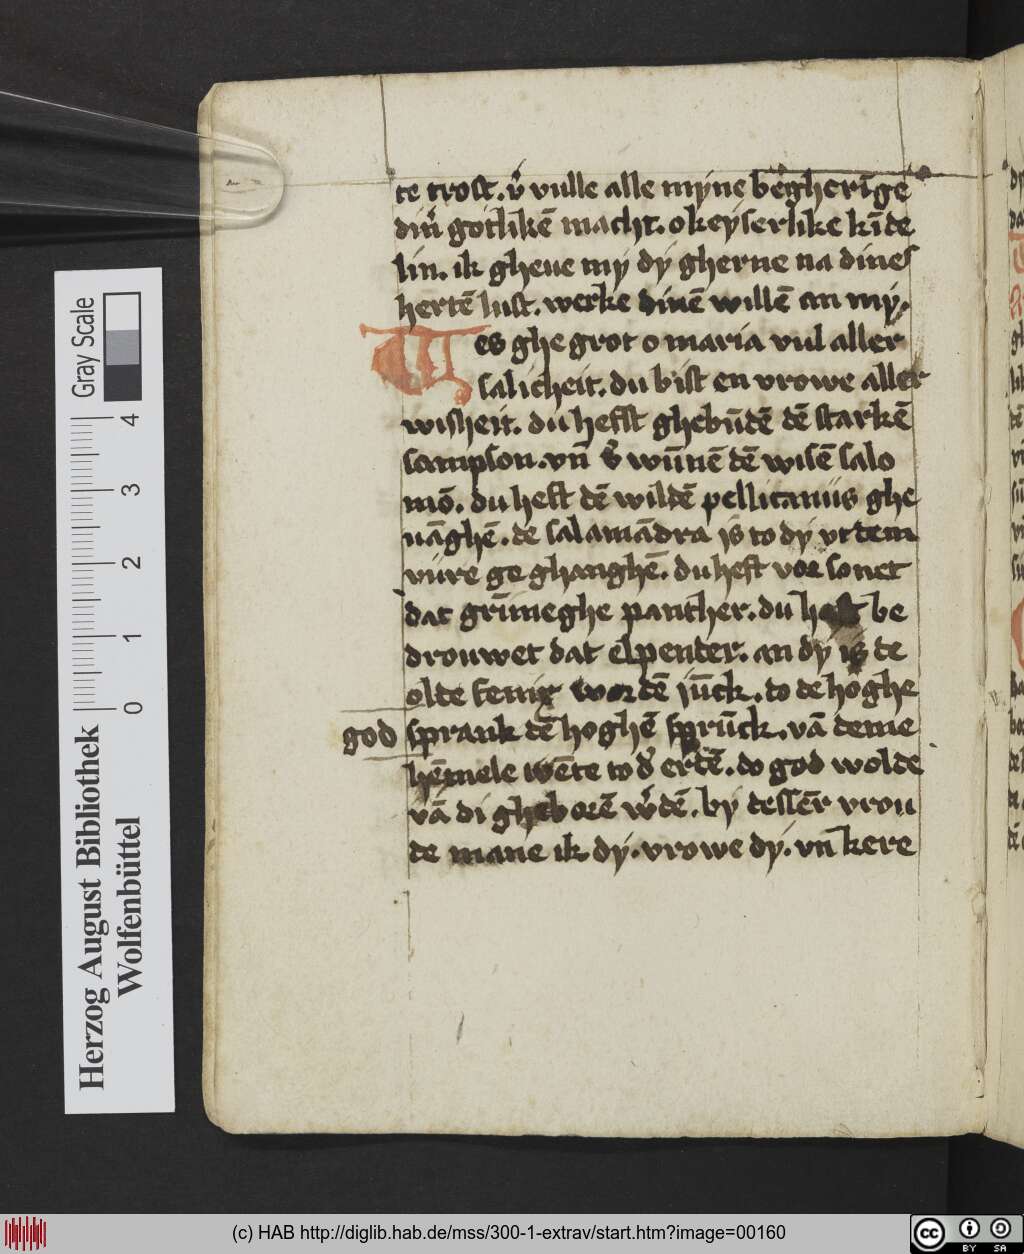 te trost. vͬ vulle alle myne begheri̅ge
dinͬ gotlike̅ macht. o keyserlike ki̅de
lin. ik gheue my dy gherne na dines
herte̅ lust. werke dine̅ wille̅ an my.
Wes ghe grot o maria vul aller
salicheit. du bist en vrowe aller
wisheit. du hefst ghebu̅de̅ de̅ starke̅
sampson. vn̅ vͬ wu̅ne̅ de̅ wise̅ salo
mo̅. du heft de̅ wilde̅ pellicanus ghe
ua̅ghe̅. de salama̅dra is to dy vt dem
vure ge ghanghe̅. du heft vor sonet
dat gri̅meghe panther. du hest be
drouwet dat elpender. an dy is de
olde fenix worde̅ ju̅ck. to de hoghe
god sprank de̅ hoghe̅ spru̅ck. va̅ deme
he̅mele we̅te to dͬ erde̅. do god wolde
va̅ di ghebore̅ wͬde̅. by desse̅r vrou
de mane ik dy. vrowe dy. vn̅ kere
Herzog August Bibliothek
Wolfenbüttel
Gray Scale
0 1 2 3 4
(c) HAB http://diglib.hab.de/mss/300-1-extrav/start.htm?image=00160
cc BY SA